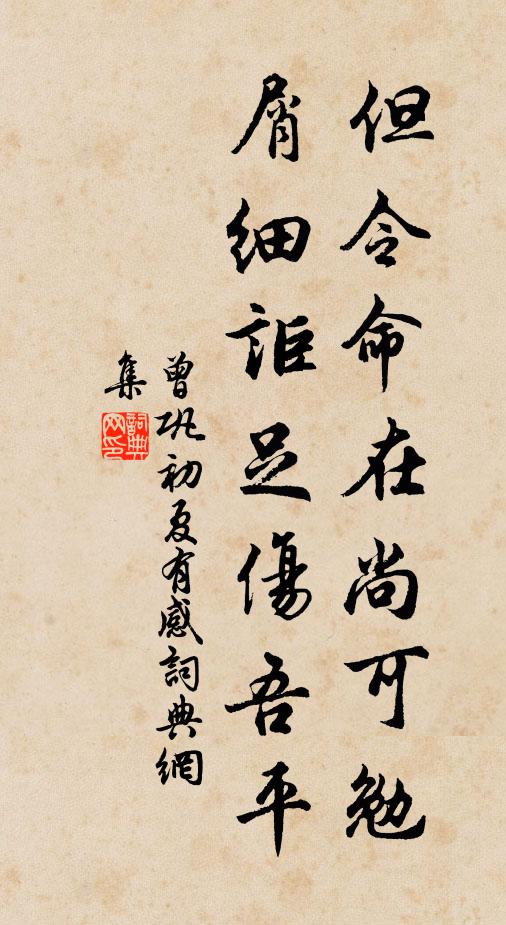 但令命在尚可勉
屑細詎足傷吾平
曾巩初夏有感詞典網
集
詞典
网印